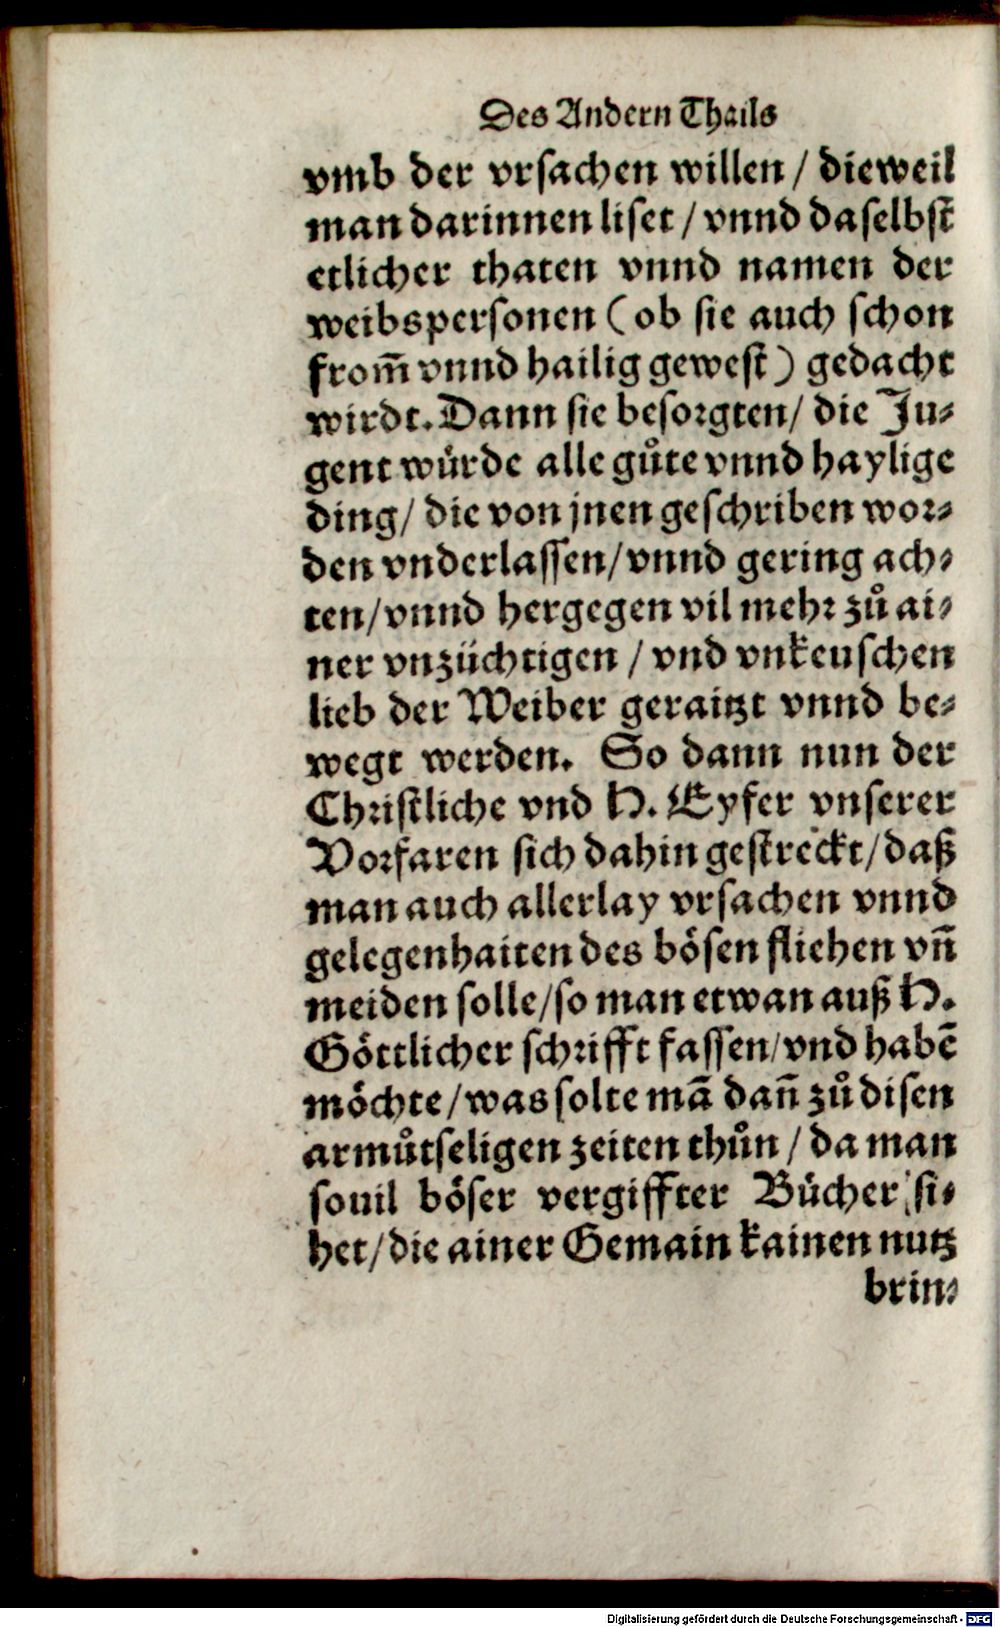 Des Andern Thails
vmb der vrsachen willen / dieweil
man darinnen liset / vnnd daselbst
etlicher thaten vnnd namen der
weibspersonen (ob sie auch schon
from̄ vnnd hailig gewest) gedacht
wirdt. Dann sie besorgten / die Ju⸗
gent wůrde alle gůte vnnd haylige
ding / die von jnen geschriben wor⸗
den vnderlassen / vnnd gering ach⸗
ten / vnnd hergegen vil mehr zů ai⸗
ner vnzüchtigen / vnd vnkeuschen
lieb der Weiber geraitzt vnnd be⸗
wegt werden. So dann nun der
Christliche vnd H. Eyfer vnserer
Vorfaren sich dahin gestreckt / daß
man auch allerlay vrsachen vnnd
gelegenhaiten des bösen fliehen vn̄
meiden solle / so man etwan auß H.
Göttlicher schrifft fassen / vnd habē
möchte / was solte mā dan̄ zů disen
armůtseligen zeiten thůn / da man
souil böser vergiffter Bücher si⸗
het / die ainer Gemain kainen nutz
brin⸗
Digitalisierung gefördert durch die Deutsche Forschungsgemeinschaft - DFG